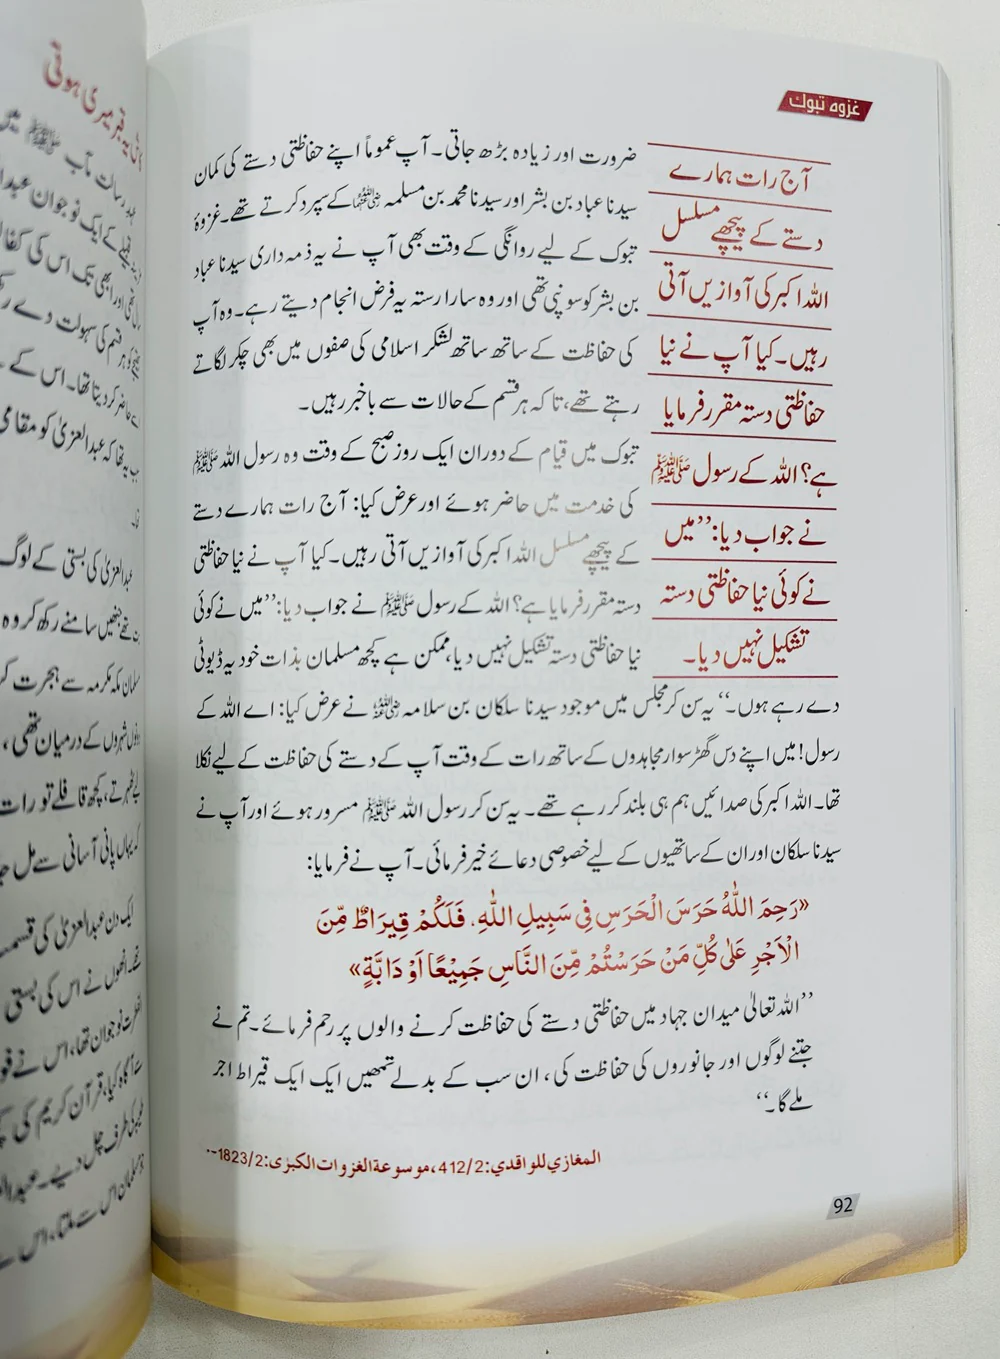 غزوہ تبوک
آج رات ہمارے
دستے کے پیچھے مسلسل
اللہ اکبر کی آوازیں آتی
رہیں۔ کیا آپ نے نیا
حفاظتی دستہ مقرر فرمایا
ہے؟ اللہ کے رسول ﷺ
نے جواب دیا: ’’میں
نے کوئی نیا حفاظتی دستہ
تشکیل نہیں دیا۔
ضرورت اور زیادہ بڑھ جاتی۔ آپ عموماً اپنے حفاظتی دستے کی کمان
سیدنا عباد بن بشر اور سیدنا محمد بن مسلمہ رضی اللہ عنہما کے سپرد کرتے تھے۔ غزوۂ
تبوک کے لیے روانگی کے وقت بھی آپ نے یہ ذمہ داری سیدنا عباد
بن بشر کو سونپی تھی اور وہ سارا رستہ یہ فرض انجام دیتے رہے۔ وہ آپ
کی حفاظت کے ساتھ ساتھ لشکر اسلامی کی صفوں میں بھی چکر لگاتے
رہتے تھے، تاکہ ہر قسم کے حالات سے باخبر رہیں۔
تبوک میں قیام کے دوران ایک روز صبح کے وقت وہ رسول اللہ ﷺ
کی خدمت میں حاضر ہوئے اور عرض کیا: آج رات ہمارے دستے
کے پیچھے مسلسل اللہ اکبر کی آوازیں آتی رہیں۔ کیا آپ نے نیا حفاظتی
دستہ مقرر فرمایا ہے؟ اللہ کے رسول ﷺ نے جواب دیا: ’’میں نے کوئی
نیا حفاظتی دستہ تشکیل نہیں دیا، ممکن ہے کچھ مسلمان بذات خود یہ ڈیوٹی
دے رہے ہوں۔‘‘ یہ سن کر مجلس میں موجود سیدنا سلکان بن سلامہ رضی اللہ عنہ نے عرض کیا: اے اللہ کے
رسول! میں اپنے دس گھڑ سوار مجاہدوں کے ساتھ رات کے وقت آپ کے دستے کی حفاظت کے لیے نکلا
تھا۔ اللہ اکبر کی صدائیں ہم ہی بلند کر رہے تھے۔ یہ سن کر رسول اللہ ﷺ مسرور ہوئے اور آپ نے
سیدنا سلکان اور ان کے ساتھیوں کے لیے خصوصی دعائے خیر فرمائی۔ آپ نے فرمایا:
«رَحِمَ اللّٰهُ حَرَسَ الْحَرَسِ فِي سَبِيلِ اللّٰهِ، فَلَكُمْ قِيرَاطٌ مِّنَ
الْأَجْرِ عَلٰى كُلِّ مَنْ حَرَسْتُمْ مِّنَ النَّاسِ جَمِيْعًا أَوْ دَابَّةٍ»
’’اللہ تعالیٰ میدان جہاد میں حفاظتی دستے کی حفاظت کرنے والوں پر رحم فرمائے۔ تم نے
جتنے لوگوں اور جانوروں کی حفاظت کی، ان سب کے بدلے تمھیں ایک ایک قیراط اجر
ملے گا۔‘‘
المغازي للواقدي: 412/2، موسوعة الغزوات الكبرٰى: 1823/2-.
92